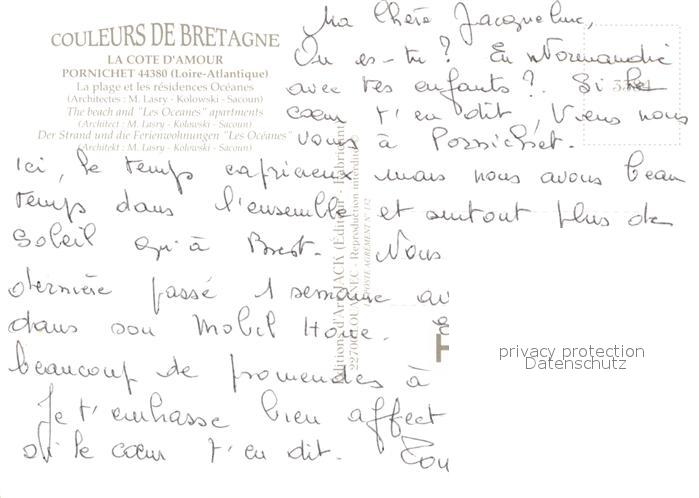 COULEURS DE BRETAGNE
LA COTE D'AMOUR
PORNICHET 44380 (Loire-Atlantique)
La plage et les résidences Océanes
(Architectes : M. Lasry - Kolowski - Sacoun)
The beach and "Les Oceanes" apartments
(Architect : M. Lasry - Kolowski - Sacoun)
Der Strand und die Ferienwohnungen "Les Océanes"
(Architekt : M. Lasry - Kolowski - Sacoun)
Ma Chère Jacqueline,
Ou es-tu ? En Normandie
avec tes enfants ? Si le
coeur t'en dit, Viens nous
vous à Pornichet.
Ici, le temps capricieux mais nous avons beau
temps dans l'ensemble et surtout plus de
Soleil qu'à Brest. Nous
dernière passé 1 semaine av
dans son Mobil Home. E
beaucoup de promenades à
Je t'embrasse bien affect
si le coeur t'en dit. Tou
Editions d'Art JACK (Editeur - Fabricant)
22700 LOUANNEC - Reproduction interdite
LA POSTE AGREMENT N° 172
privacy protection
Datenschutz